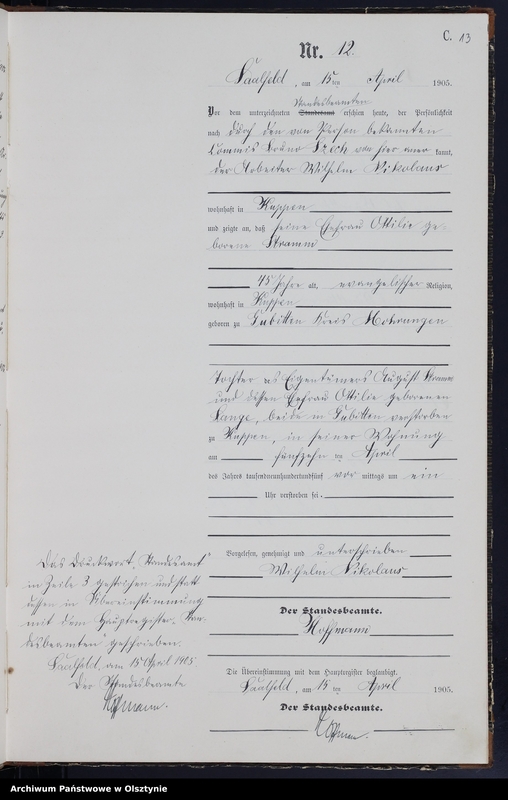 C. 13
Nr. 12.
Saalfeld, am 15ten April 1905.
Standesbeamten
Vor dem unterzeichneten Standesamt erschien heute, der Persönlichkeit
nach durch den von Person bekannten
Commis Bruno von hier kannt,
der Arbeiter Wilhelm Nikolaus
wohnhaft in Kuppen
und zeigte an, daß seine Ehefrau Ottilie ge-
borene Stramm
45 Jahre alt, evangelischer Religion,
wohnhaft in Kuppen
geboren zu Gubitten Kreis Mohrungen
Tochter des Eigentümers August Stramm
und dessen Ehefrau Ottilie geborenen
Lange, beide in Gubitten verstorben
zu Kuppen, in seiner Wohnung
am fünfzehnten April
des Jahres tausendneunhundertundfünf vormittags um ein
Uhr verstorben sei.
Vorgelesen, genehmigt und unterschrieben
Wilhelm Nikolaus
Der Standesbeamte.
Hoffmann
Das Druckwort „Standesamt"
in Zeile 3 gestrichen und statt
dessen in Übereinstimmung
mit dem Hauptregister „Stan-
desbeamten" geschrieben.
Saalfeld, am 15 April 1905.
Der Standesbeamte
Hoffmann.
Die Übereinstimmung mit dem Hauptregister beglaubigt.
Saalfeld, am 15ten April 1905.
Der Standesbeamte.
Hoffmann.
Archiwum Państwowe w Olsztynie